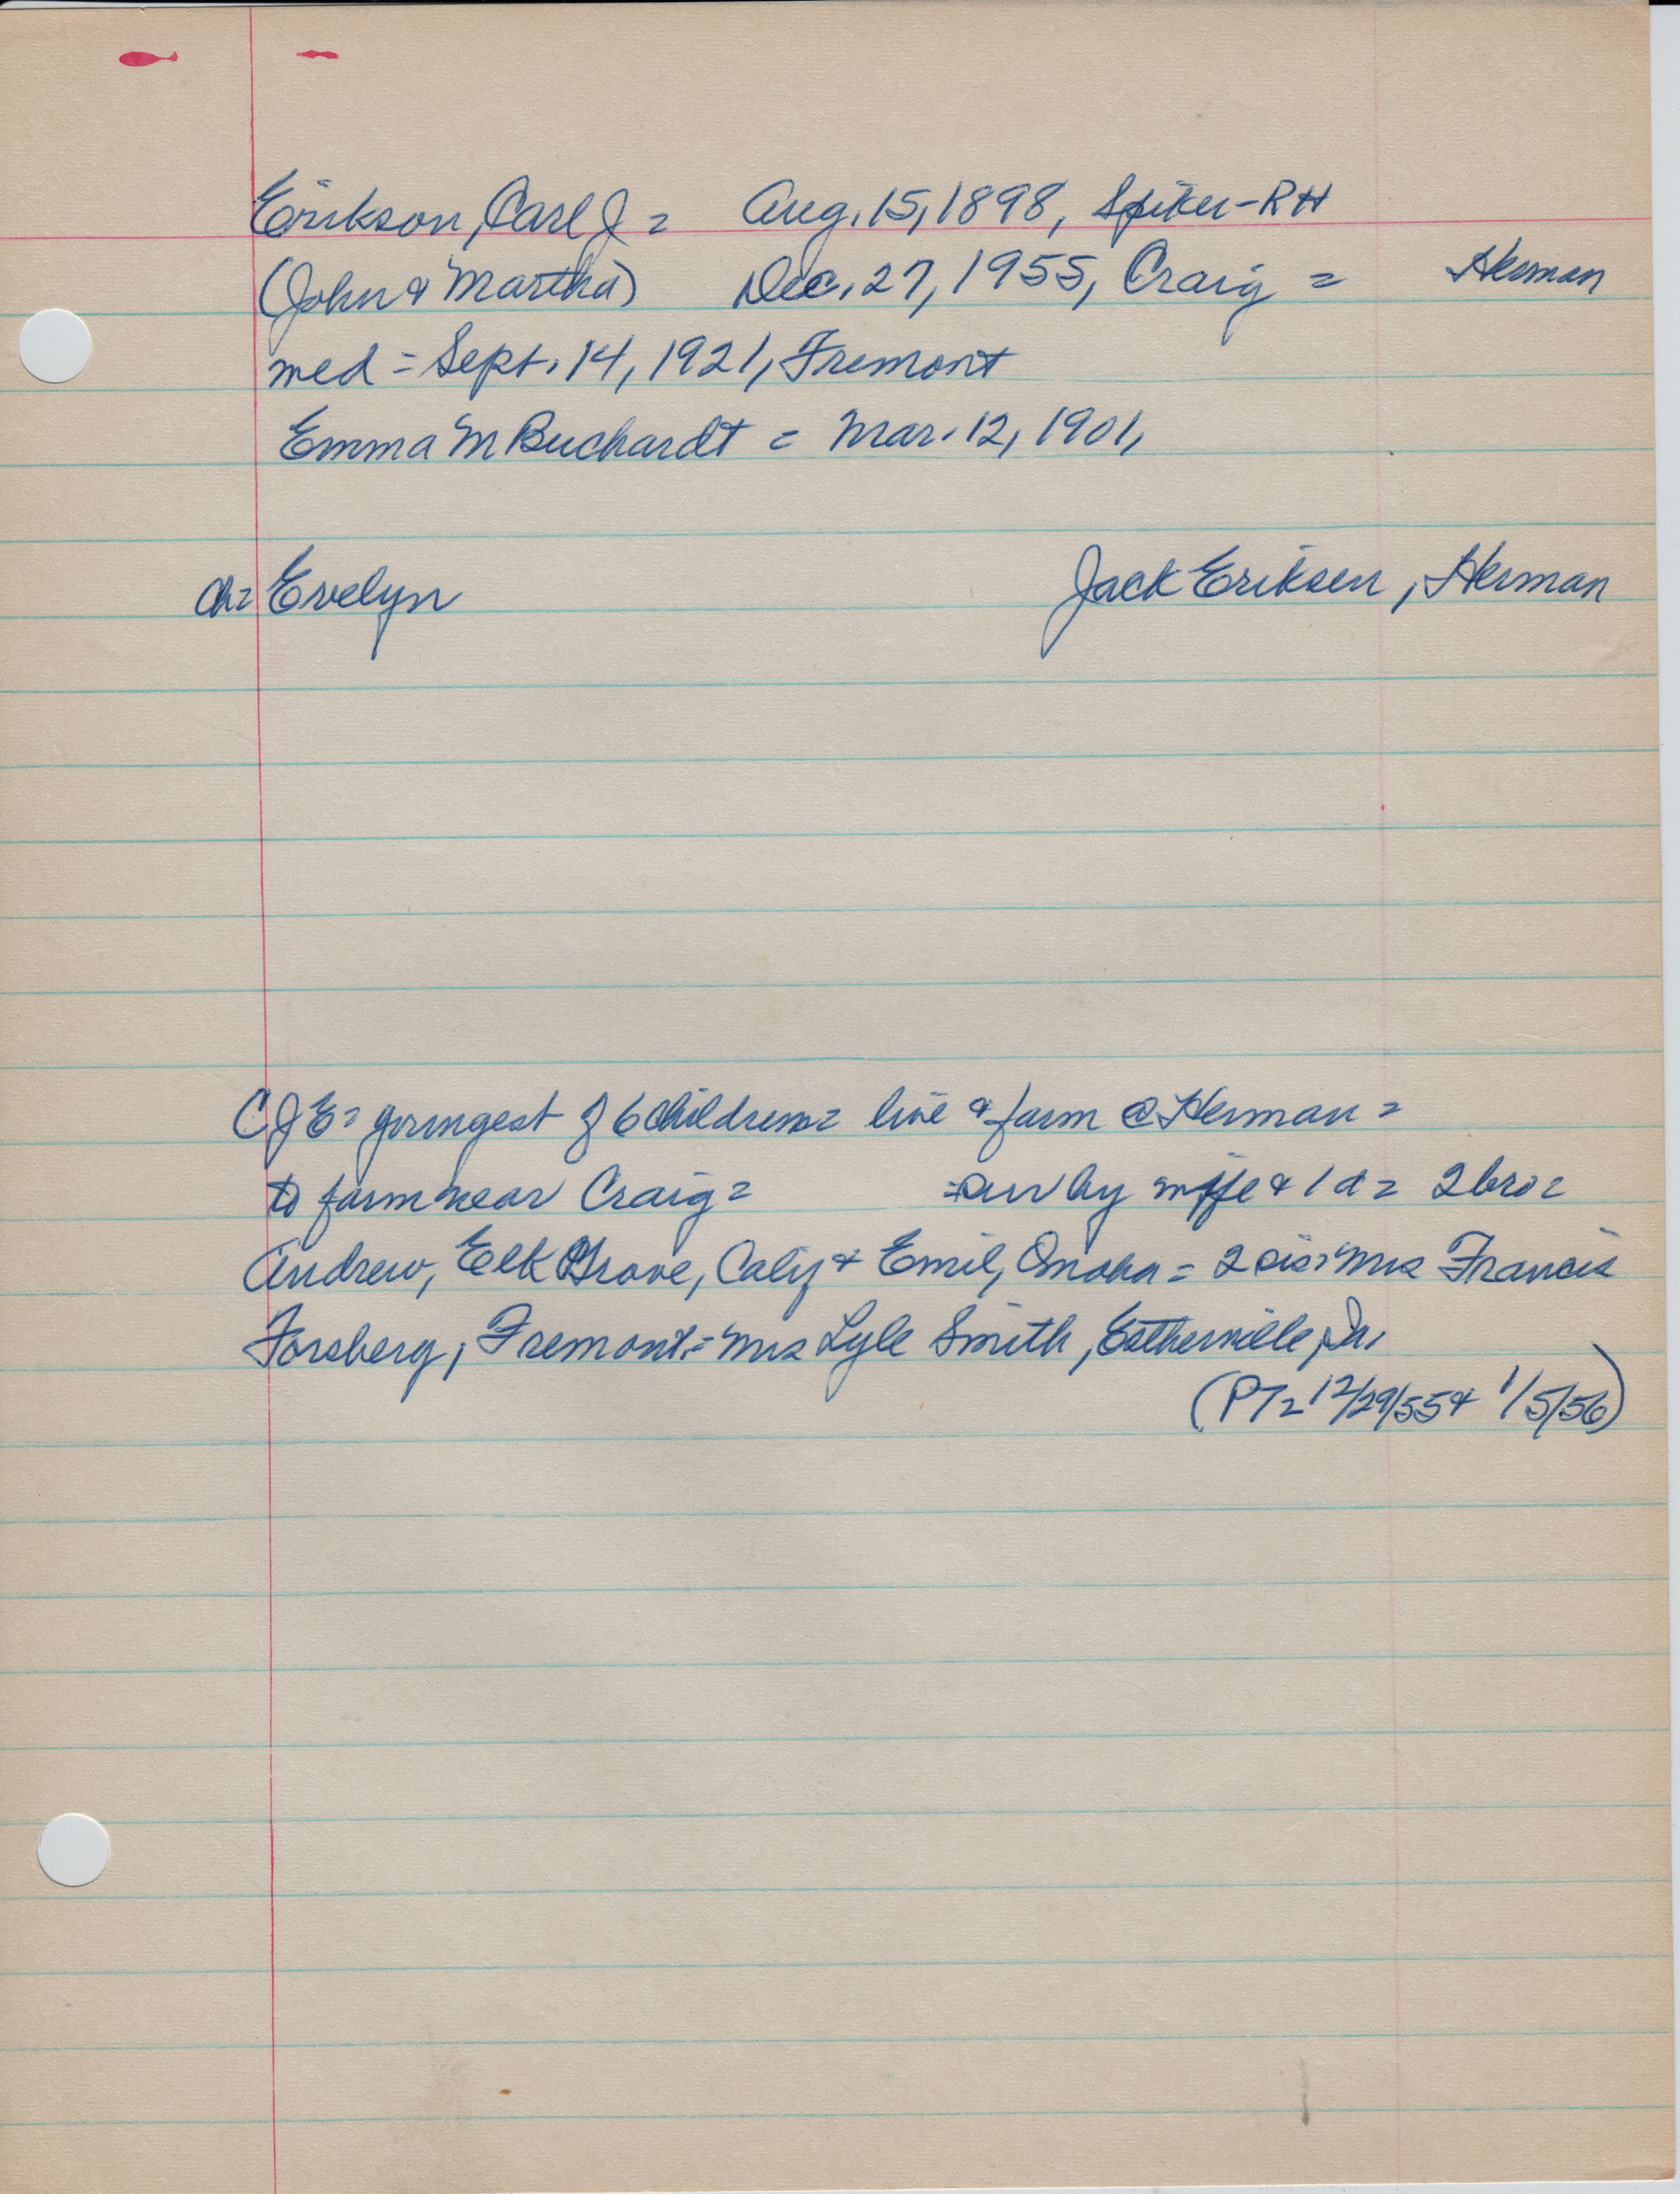 Erikson, Carl J = Aug. 15, 1898, Spiker-RH
(John & Martha) Dec. 27, 1955, Craig = Herman
med = Sept. 14, 1921, Fremont
Emma M Buchardt = Mar. 12, 1901,
ch= Evelyn Jack Eriksen, Herman
CJE= youngest of 6 children= live & farm @ Herman =
to farm near Craig= =sur by wife & 1 d = 2 bro=
Andrew, Elk Grove, Calif & Emil, Omaha = 2 sis= Mrs Francis
Forsberg, Fremont.= Mrs Lyle Smith, Estherville, Ia.
(PT= 12/29/55 & 1/5/56)